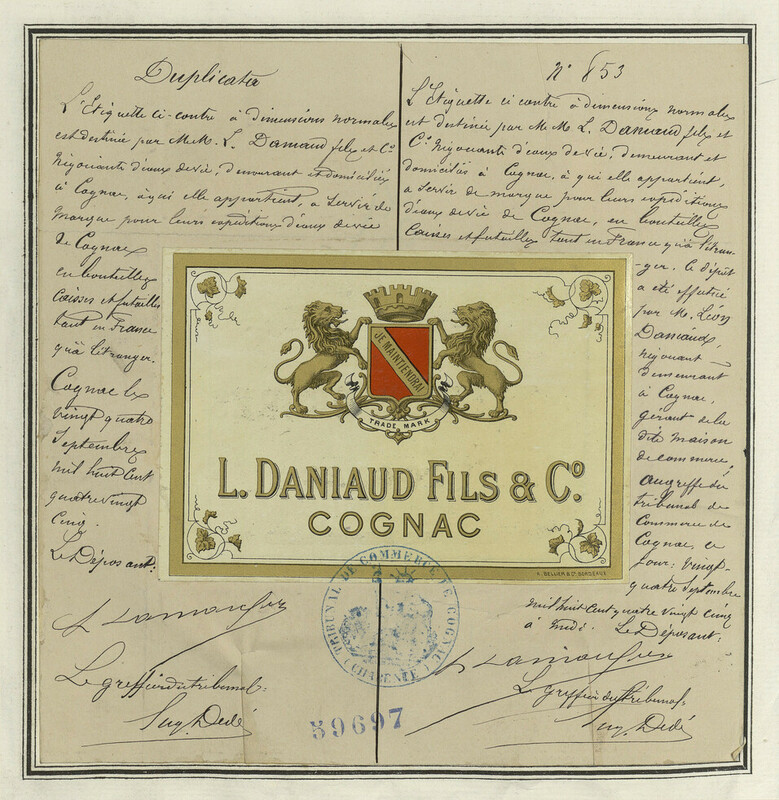 Duplicata
L'Etiquette ci-contre à dimensions normales
est destinée par M.M. L. Daniaud fils et Cº
Négociants d'eaux de vie, demeurant et domiciliés
à Cognac, à qui elle appartient, à servir de
marque pour leurs expéditions d'eaux de vie
de Cognac
en bouteilles
caisses et futailles
tant en France
qu'à l'étranger.
Cognac le
vingt quatre
Septembre
mil huit cent
quatre vingt
cinq.
Le Déposant:
Le greffier du tribunal:
Eug. Dedé
Nº 853
L'Etiquette ci contre à dimensions normales
est destinée par M M L. Daniaud fils et
Cº Négociants d'eaux de vie, demeurant et
domiciliés à Cognac, à qui elle appartient,
à servir de marque pour leurs expéditions
d'eaux de vie de Cognac, en bouteilles
caisses et futailles tant en France qu'à l'étran-
-ger. Ce dépôt
a été effectué
par M. Léon
Daniaud,
négociant
demeurant
à Cognac,
gérant de la
dite maison
de commerce,
au greffe du
tribunal de
Commerce de
Cognac, ce
jour: vingt-
quatre Septembre
mil huit cent quatre vingt cinq
à midi. Le Déposant:
Le greffier du tribunal
Eug. Dedé
JE MAINTIENDRAI
TRADE MARK
L. DANIAUD FILS & Cº
COGNAC
TRIBUNAL DE COMMERCE DE COGNAC
(CHARENTE)
59697